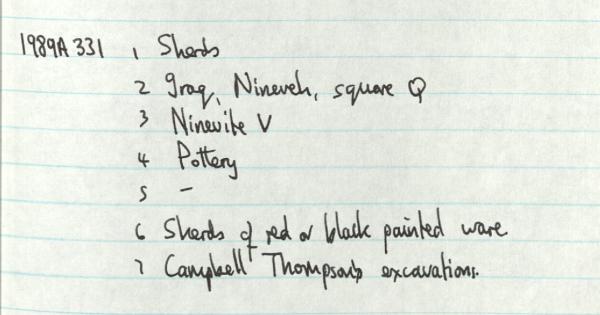 1989A 331 1 Sherds
2 Iraq, Nineveh, square Q
3 Ninevite V
4 Pottery
5 -
6 Sherds of red or black painted ware
7 Campbell Thompson's excavations.